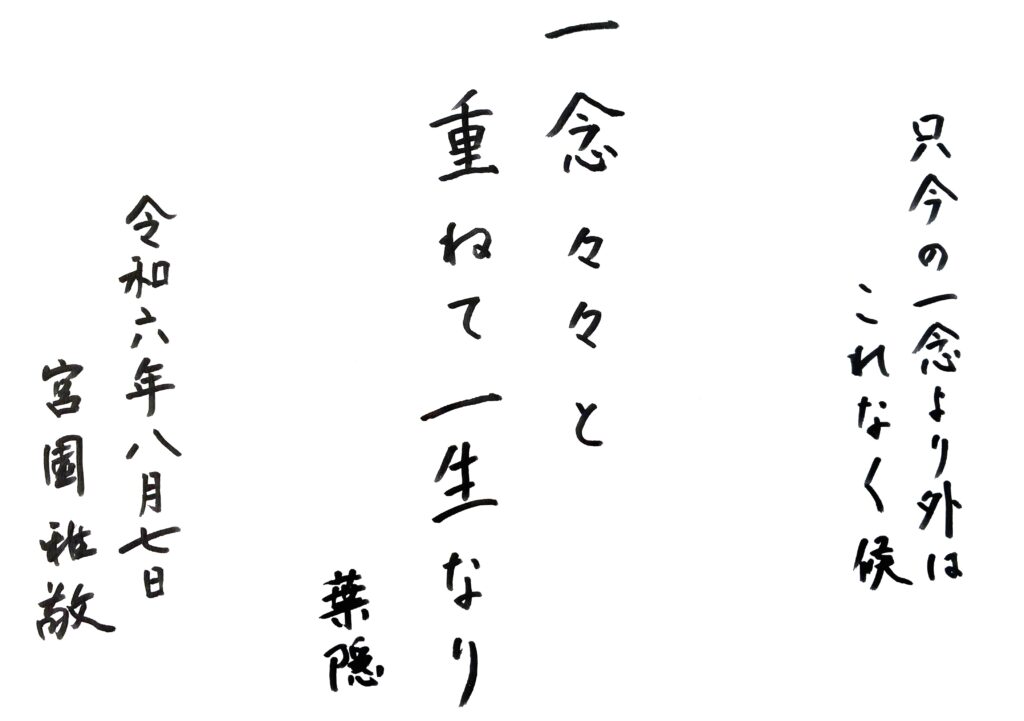 只今の一念より外は
これなく候
一念々々と
重ねて一生なり
葉隠
令和六年八月七日
宮園雅敬